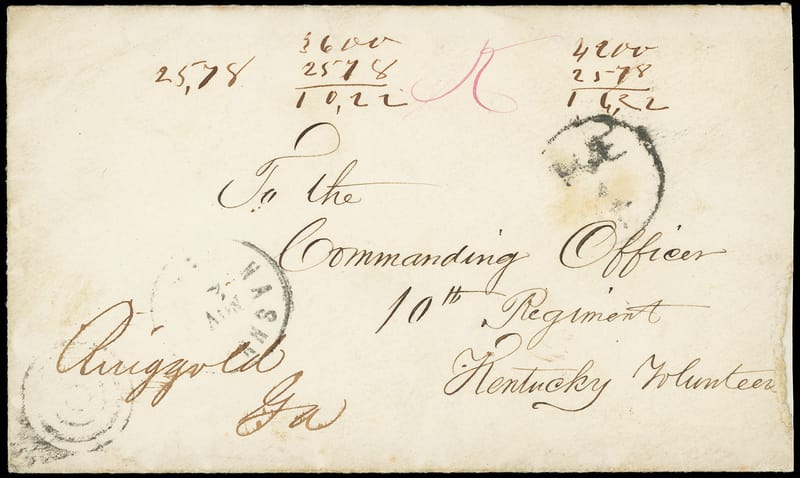 25,78
3600
2578
10,22
4200
2578
16,22
To the
Commanding Officer
10th Regiment
Kentucky Volunteer
Ringgold
Ga
WASH